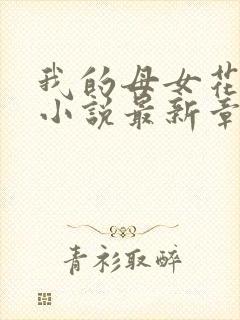 我的母女花
小说最新章
青衫取醉